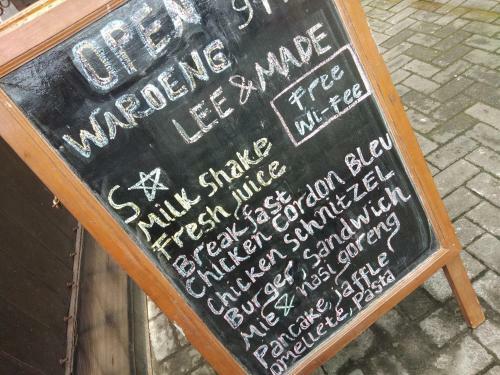 OPEN
WAROENG
LEE & MADE
Free
Wi. Fee
S
Milk Shake
Fresh juice
Break fast
Chicken Cordon Bleu
Chicken SchnitZEL
Burger, Sandwich
Mie & nasi goreng
Pancake, Jaffle
Omellete, Pasta